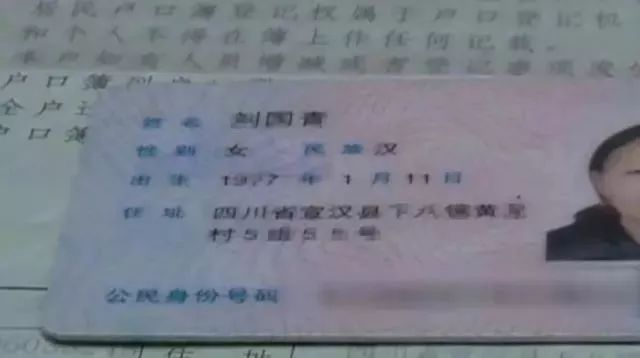 居民户口簿登记权属于户口登记机
和个人不得在簿上作任何记载。
本户如有人员增减或者登记事项发
户口簿到户
全户迁
户口簿
姓名 国青
性别 女 民族 汉
出生 1977 年 1 月 11 日
住址 四川省宣汉县下八镇黄
村5组 号
公民身份号码
住 址